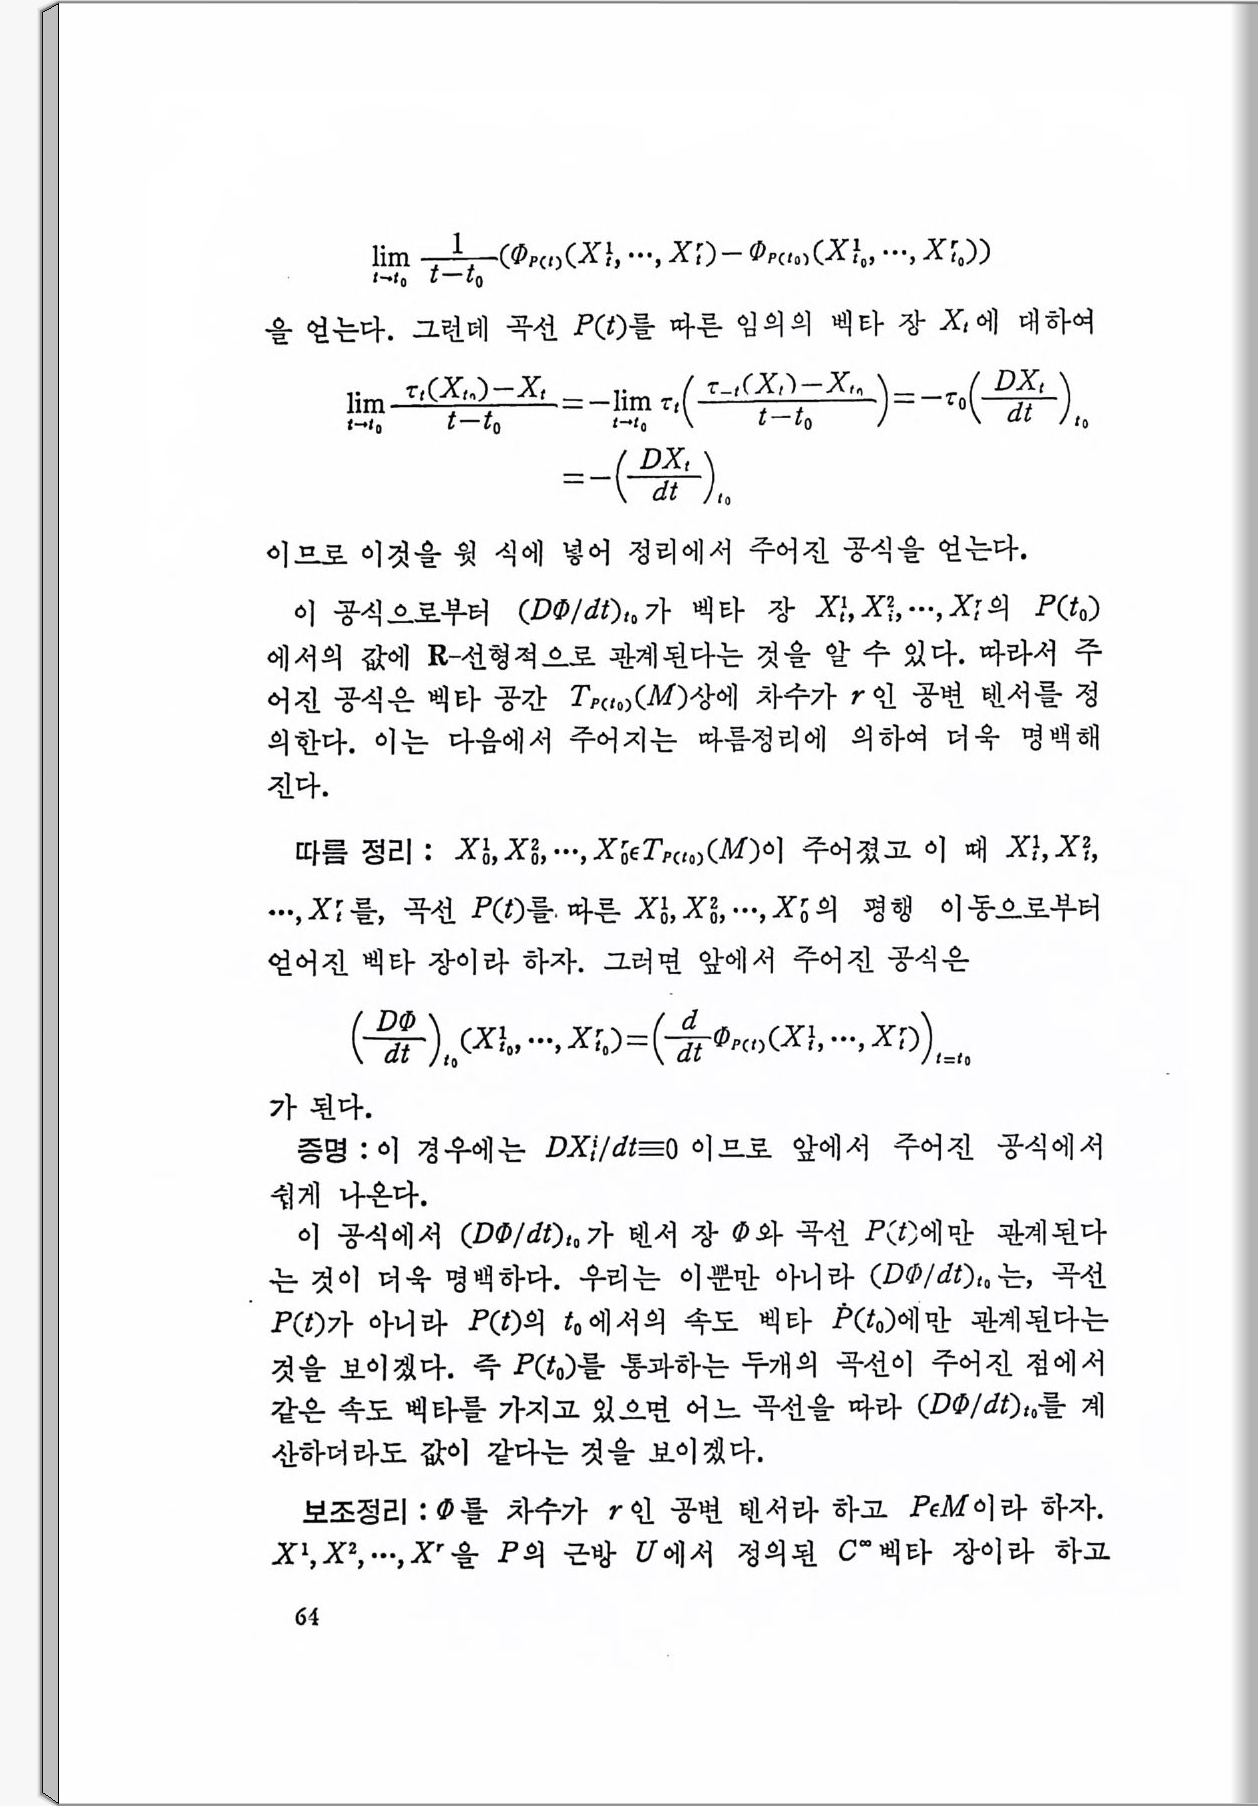 lim_{t→t₀} 1/(t−t₀) (Φ_{P(t)}(X¹_t, ⋯, Xʳ_t) − Φ_{P(t₀)}(X¹_{t₀}, ⋯, Xʳ_{t₀}))
을 얻는다. 그런데 곡선 P(t)를 따른 임의의 벡타 장 X_t에 대하여
lim_{t→t₀} (τ_t(X_{t₀})−X_t)/(t−t₀) = −lim_{t→t₀} τ_t((τ_{−t}(X_t)−X_{t₀})/(t−t₀)) = −τ₀(DX_t/dt)_{t₀}
= −(DX_t/dt)_{t₀}
이므로 이것을 윗 식에 넣어 정리에서 주어진 공식을 얻는다.
이 공식으로부터 (DΦ/dt)_{t₀}가 벡타 장 X¹_t, X²_t, ⋯, Xʳ_t의 P(t₀)
에서의 값에 R-선형적으로 관계된다는 것을 알 수 있다. 따라서 주
어진 공식은 벡타 공간 T_{P(t₀)}(M)상에 차수가 r인 공변 텐서를 정
의한다. 이는 다음에서 주어지는 따름정리에 의하여 더욱 명백해
진다.
따름 정리 : X¹₀, X²₀, ⋯, Xʳ₀ϵT_{P(t₀)}(M)이 주어졌고 이 때 X¹_t, X²_t,
⋯, Xʳ_t를, 곡선 P(t)를 따른 X¹₀, X²₀, ⋯, Xʳ₀의 평행 이동으로부터
얻어진 벡타 장이라 하자. 그러면 앞에서 주어진 공식은
(DΦ/dt)_{t₀}(X¹_{t₀}, ⋯, Xʳ_{t₀}) = (d/dt Φ_{P(t)}(X¹_t, ⋯, Xʳ_t))_{t=t₀}
가 된다.
증명 : 이 경우에는 DXⁱ_t/dt≡0 이므로 앞에서 주어진 공식에서
쉽게 나온다.
이 공식에서 (DΦ/dt)_{t₀}가 텐서 장 Φ와 곡선 P(t)에만 관계된다
는 것이 더욱 명백하다. 우리는 이뿐만 아니라 (DΦ/dt)_{t₀}는, 곡선
P(t)가 아니라 P(t)의 t₀에서의 속도 벡타 Ṗ(t₀)에만 관계된다는
것을 보이겠다. 즉 P(t₀)를 통과하는 두개의 곡선이 주어진 점에서
같은 속도 벡타를 가지고 있으면 어느 곡선을 따라 (DΦ/dt)_{t₀}를 계
산하더라도 값이 같다는 것을 보이겠다.
보조정리 : Φ를 차수가 r인 공변 텐서라 하고 PϵM이라 하자.
X¹, X², ⋯, Xʳ을 P의 근방 U에서 정의된 C^∞벡타 장이라 하고
64